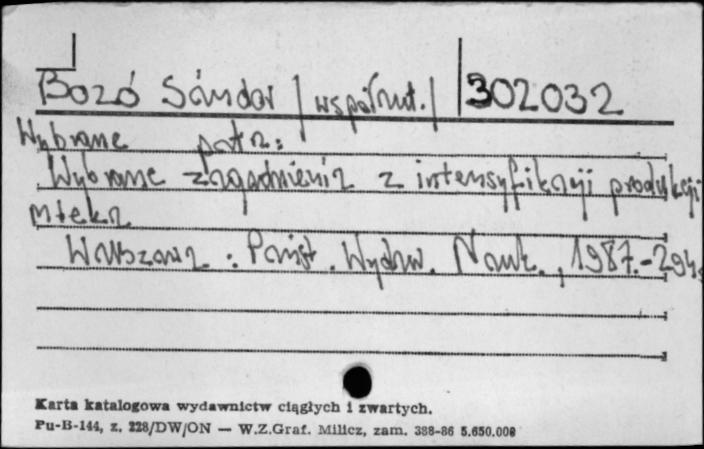 Bozó Sándor /współaut./ 302032
Wybrane patrz:
Wybrane zagadnienia z intensyfikacji produkcji
mleka
Warszawa : Państ. Wydaw. Nauk., 1987.-294s
Karta katalogowa wydawnictw ciągłych i zwartych.
Pu-B-144, z. 228/DW/ON — W.Z.Graf. Milicz, zam. 388-86 5.650.000